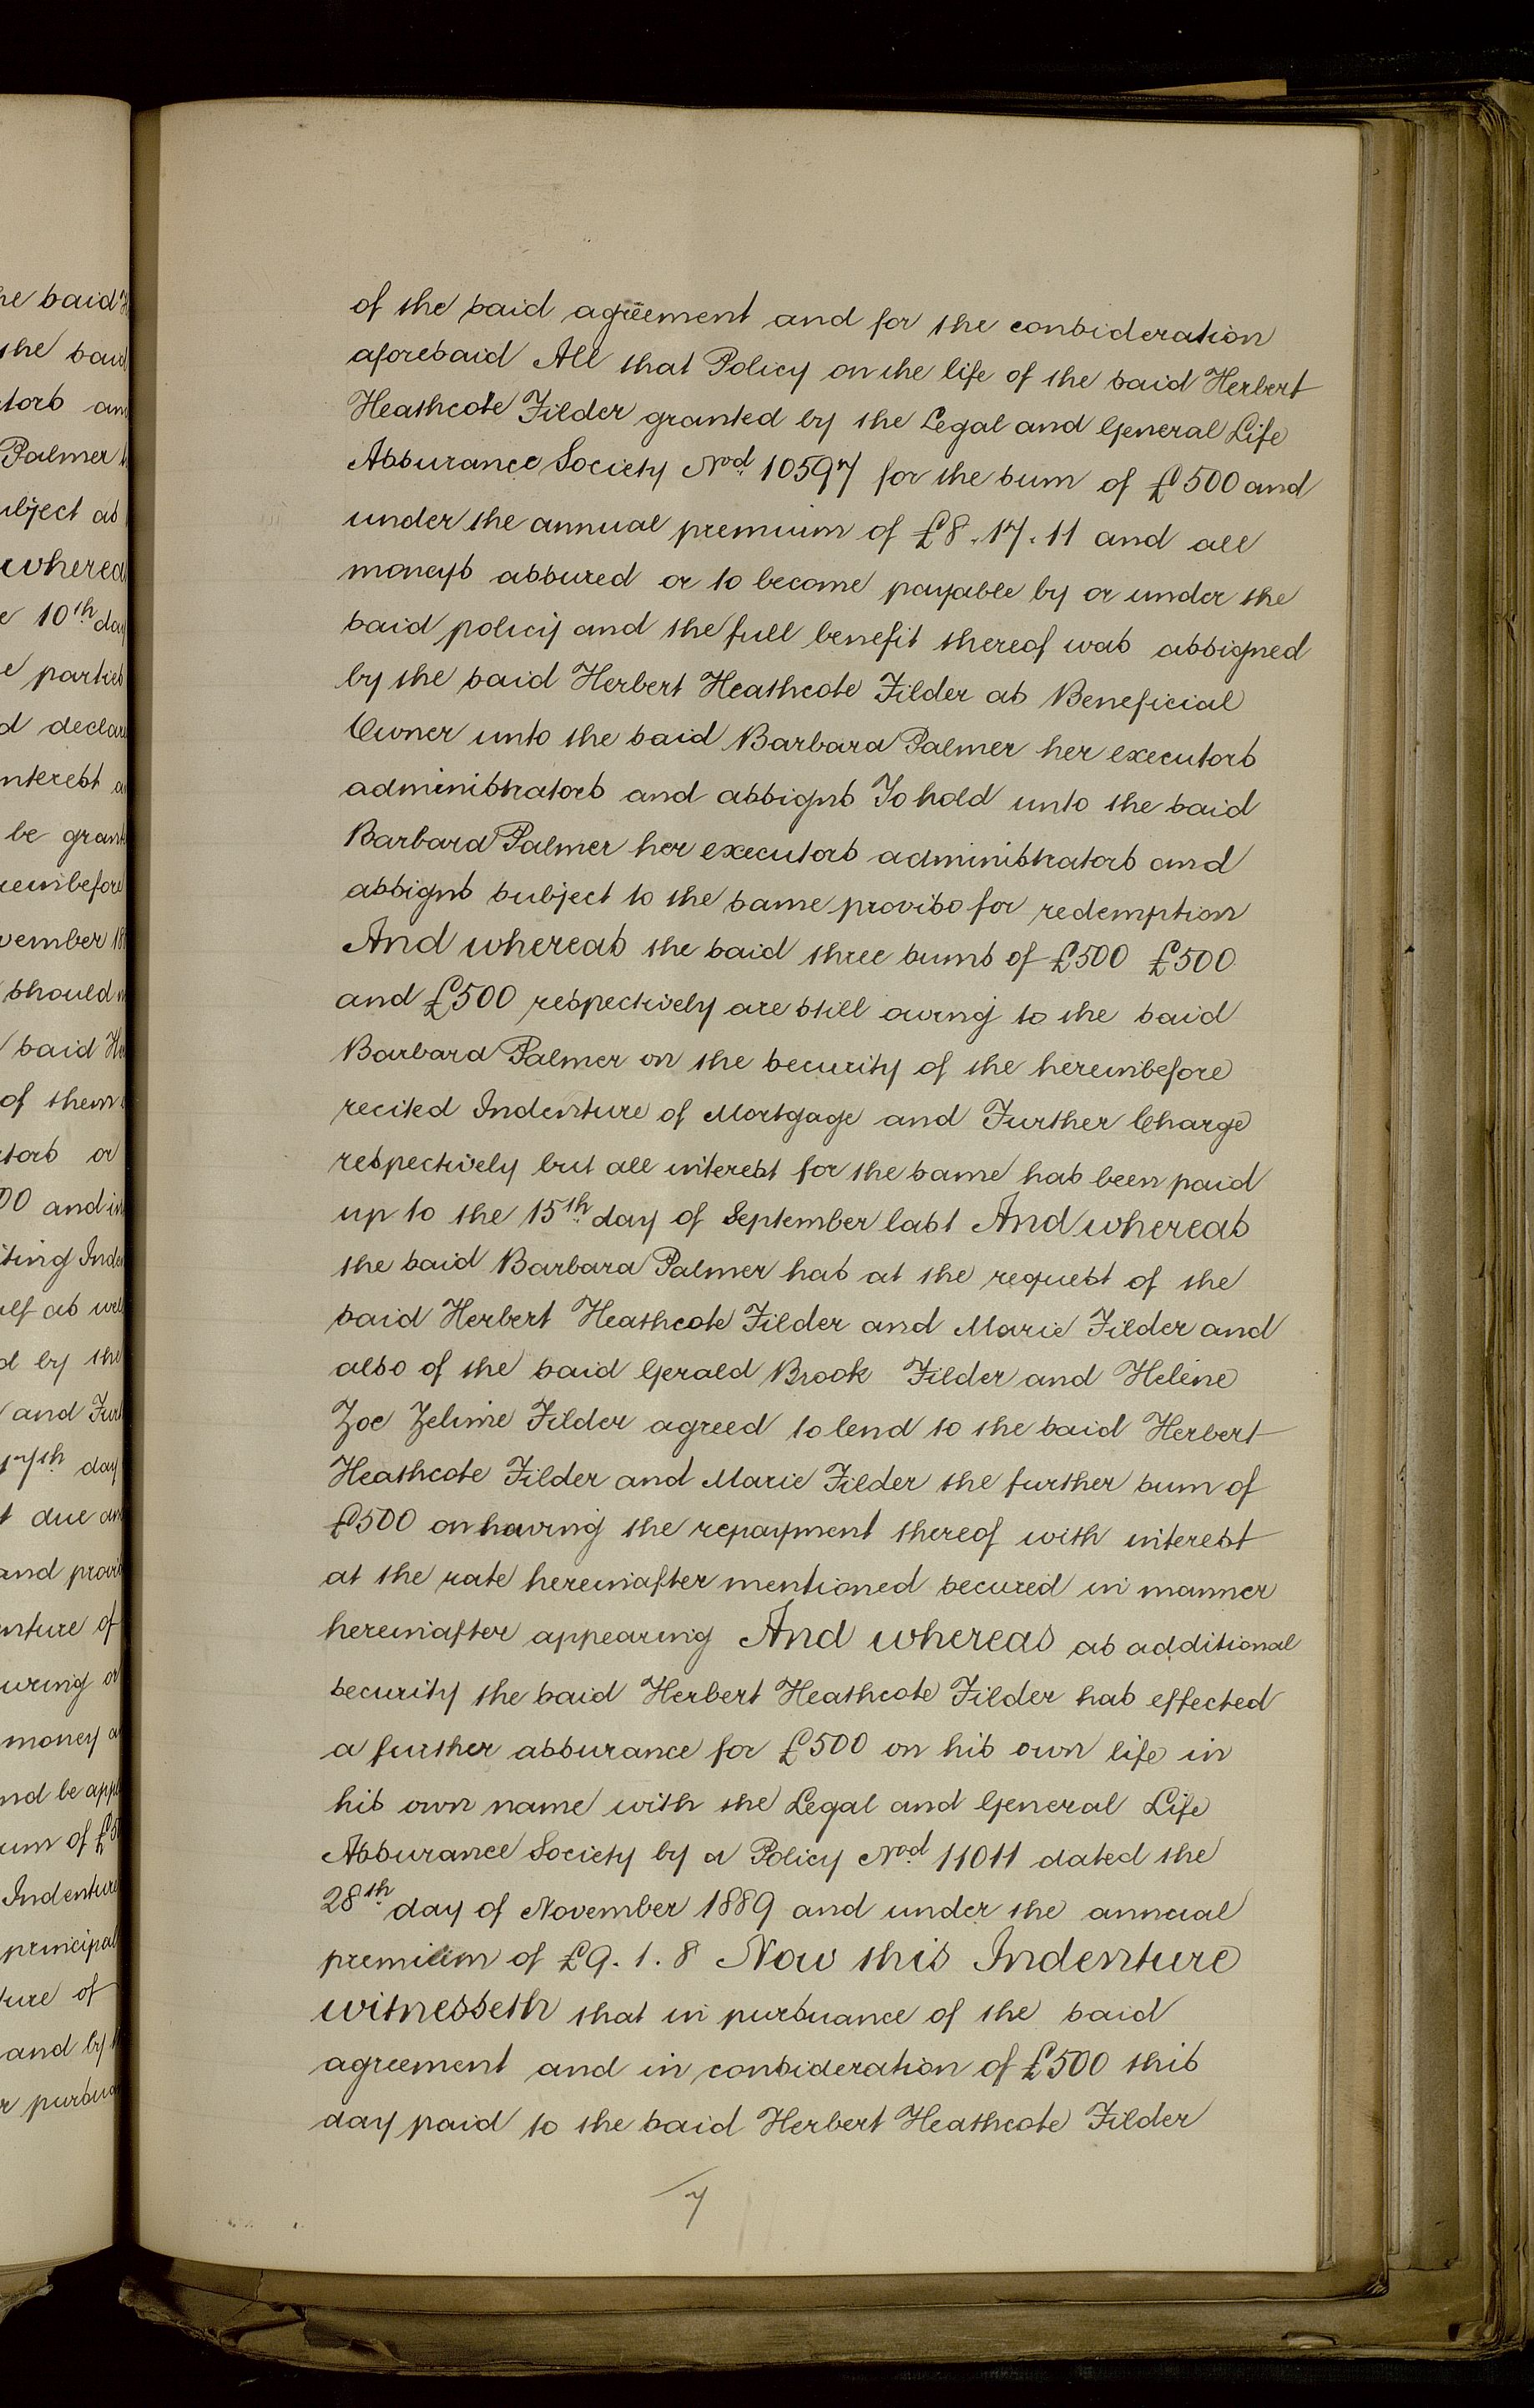 of the said agreement and for the consideration
aforesaid All that Policy on the life of the said Herbert
Heathcote Filder granted by the Legal and General Life
Assurance Society Nod. 10597 for the sum of £500 and
under the annual premium of £8.17.11 and all
moneys assured or to become payable by or under the
said policy and the full benefit thereof was assigned
by the said Herbert Heathcote Filder as Beneficial
Owner unto the said Barbara Palmer her executors
administrators and assigns To hold unto the said
Barbara Palmer her executors administrators and
assigns subject to the same proviso for redemption
And whereas the said three sums of £500 £500
and £500 respectively are still owing to the said
Barbara Palmer on the security of the hereinbefore
recited Indenture of Mortgage and Further Charge
respectively but all interest for the same has been paid
up to the 15th day of September last And whereas
the said Barbara Palmer has at the request of the
said Herbert Heathcote Filder and Marie Filder and
also of the said Gerald Brook Filder and Helene
Zoe Zelime Filder agreed to lend to the said Herbert
Heathcote Filder and Marie Filder the further sum of
£500 on having the repayment thereof with interest
at the rate hereinafter mentioned secured in manner
hereinafter appearing And whereas as additional
security the said Herbert Heathcote Filder has effected
a further assurance for £500 on his own life in
his own name with the Legal and General Life
Assurance Society by a Policy Nod. 11011 dated the
28th day of November 1889 and under the annual
premium of £9.1.8 Now this Indenture
witnesseth that in pursuance of the said
agreement and in consideration of £500 this
day paid to the said Herbert Heathcote Filder
7